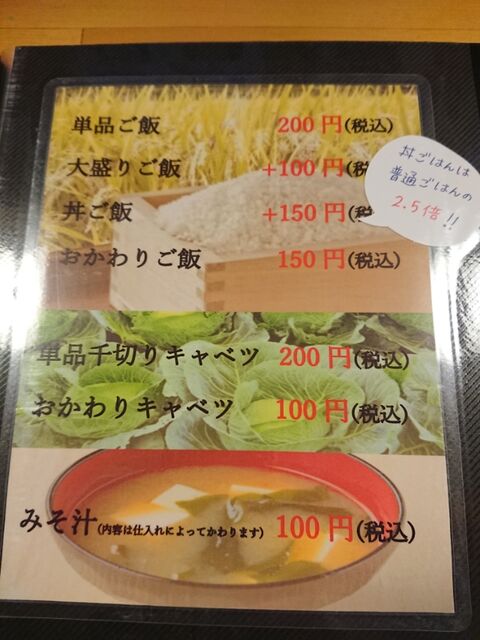 単品ご飯 200円(税込)
大盛りご飯 +100円(税
丼ご飯 +150円(税
丼ごはんは
普通ごはんの
2.5倍!!
おかわりご飯 150円(税込)
単品千切りキャベツ 200円(税込)
おかわりキャベツ 100円(税込)
みそ汁(内容は仕入れによってかわります) 100円(税込)